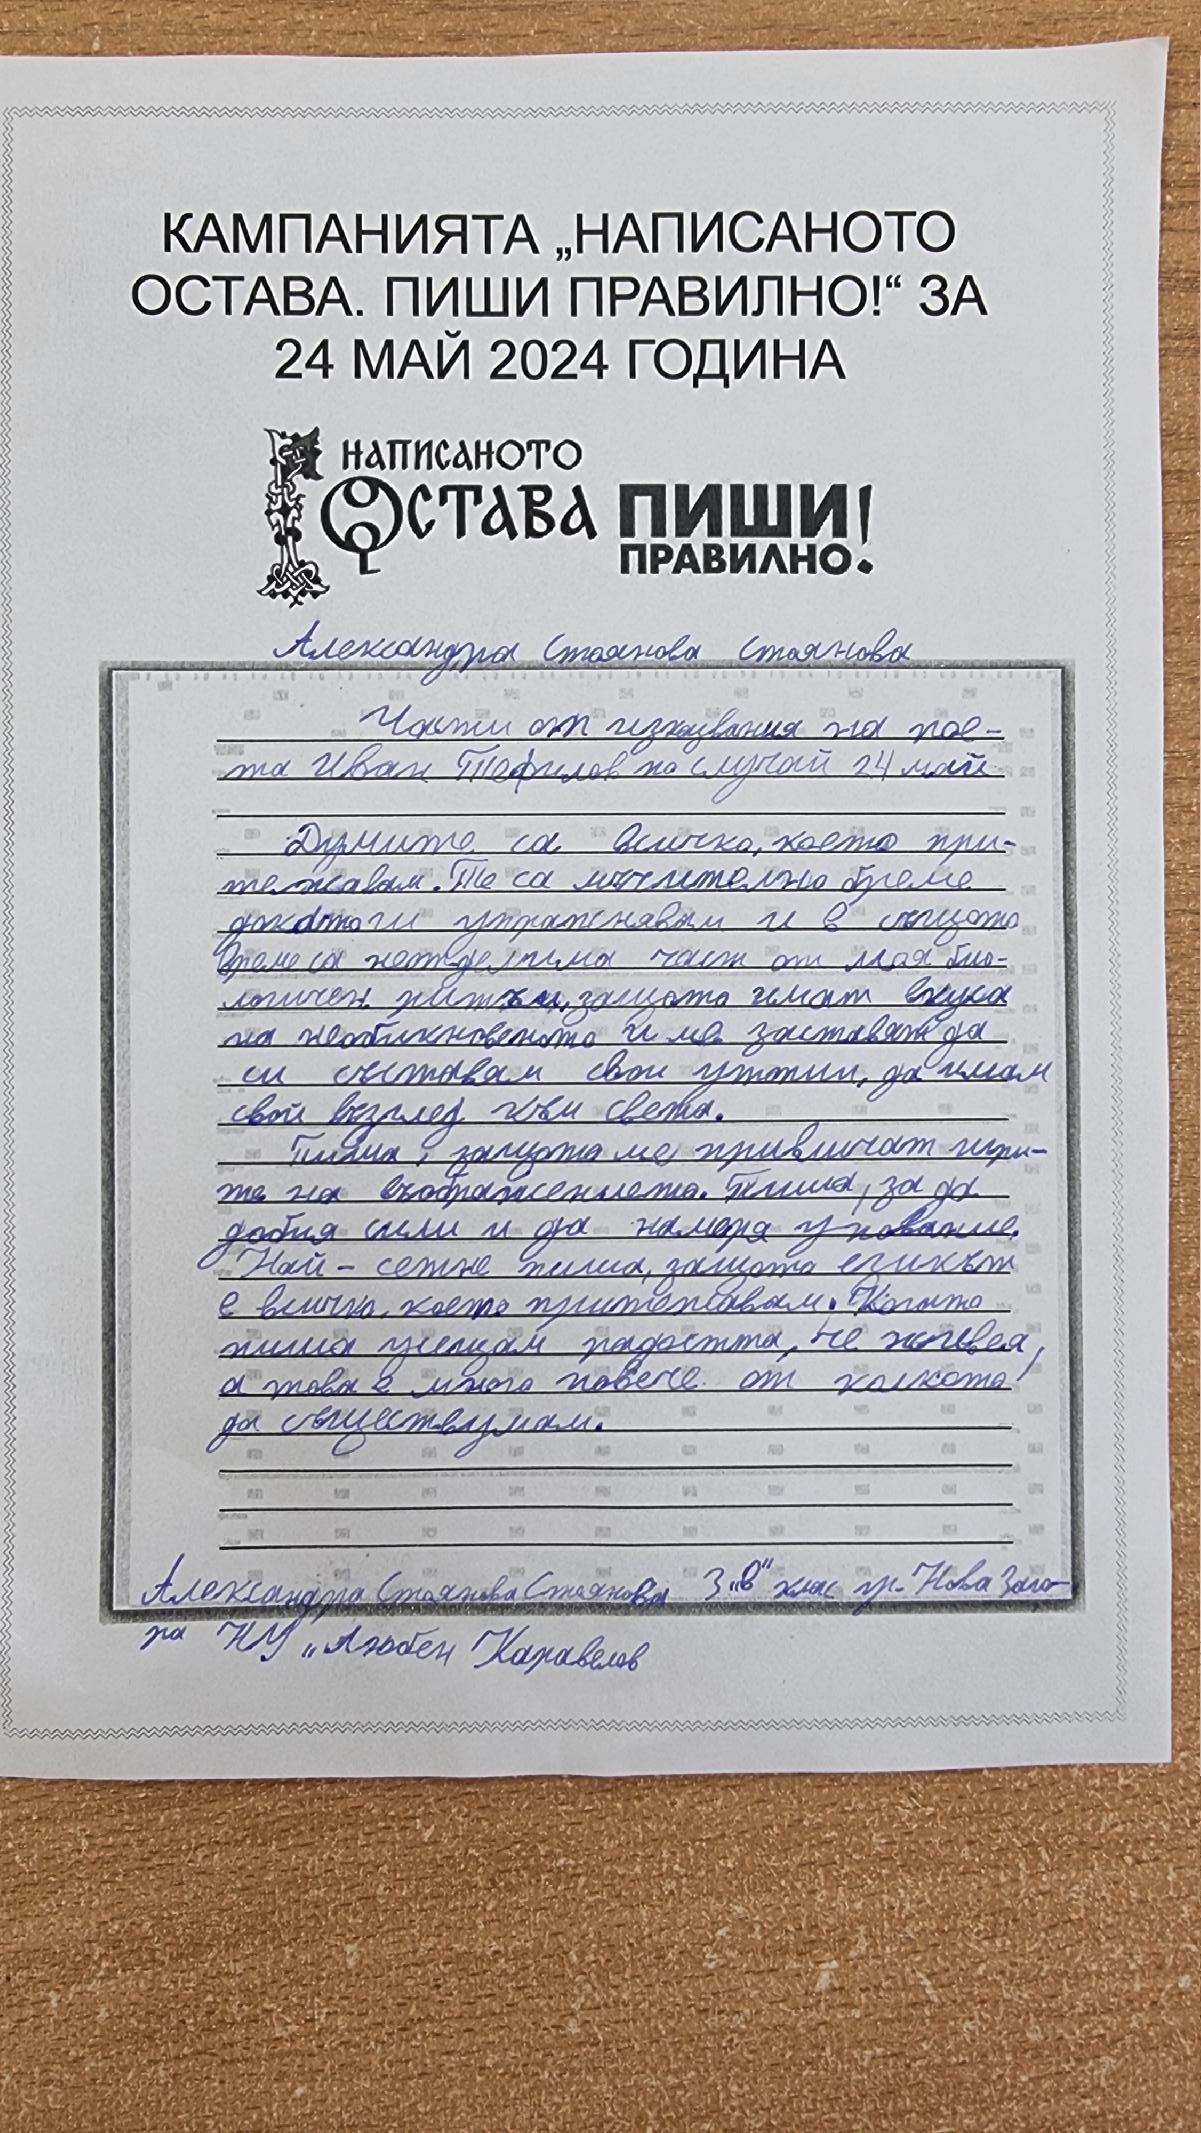 КАМПАНИЯТА „НАПИСАНОТО
ОСТАВА. ПИШИ ПРАВИЛНО!“ ЗА
24 МАЙ 2024 ГОДИНА
НАПИСАНОТО
ОСТАВА ПИШИ
ПРАВИЛНО!
Александра Стоянова Стоянова
Части от изказвания на пое-
та Иван Теофилов по случай 24 май
Думите са всичко, което при-
тежавам. Те са мъчително бреме
докато ги упражнявам и в същото
време са неотделима част от моя био-
логичен ритъм, защото имат вкуса
на необикновеното и ме заставят да
си съставям свои утопии, да имам
свой възглед към света.
Пиша, защото ме привличат игри-
те на въображението. Пиша, за да
добия сили и да намеря упование.
Най-сетне пиша, защото езикът
е всичко, което притежавам. Когато
пиша усещам радостта, че живея,
а това е много повече от колкото
да съществувам.
Александра Стоянова Стоянова 3 „в“ клас гр. Нова Заго-
ра НУ „Любен Каравелов